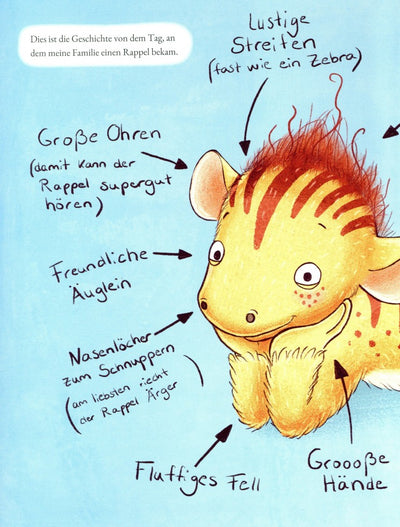 Dies ist die Geschichte von dem Tag, an
dem meine Familie einen Rappel bekam.
Lustige
Streifen
(fast wie ein Zebra)
Große Ohren
(damit kann der
Rappel supergut
hören)
Freundliche
Äuglein
Nasenlöcher
zum Schnuppern
(am liebsten riecht
der Rappel Ärger)
Fluffiges Fell
Groooße
Hände